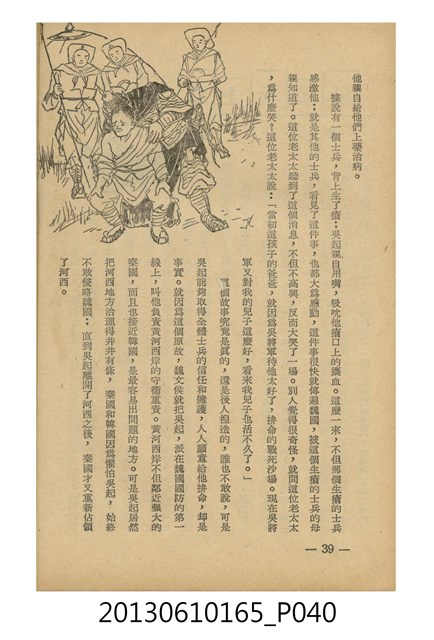 他親自給他們上藥治病。
據說有一個士兵，背上生了瘡；吳起親自用嘴，吸吮他瘡口上的膿血。這麼一來，不但那個生瘡的士兵
感激他；就是其他的士兵，看見了這件事，也都大為感動，這件事很快就傳遍魏國，被這個生瘡的士兵的母
親知道了。這位老太太聽到了這個消息，不但不高興，反而大哭了一場。別人覺得很奇怪，就問這位老太太
，為什麼哭？這位老太太說：「當初這孩子的爸爸，就因為吳將軍待他太好了，拚命的戰死沙場。現在吳將
軍又對我的兒子這麼好，看來我兒子也活不久了。」
這個故事究竟是真的，還是後人揑造的，誰也不敢說，可是
吳起能夠取得全體士兵的信任和擁護，人人願意給他拚命，却是
事實。就因為這個原故，魏文侯就把吳起，派在魏國國防的第一
線上，叫他負責黃河西岸的守衞重責。黃河西岸不但鄰近強大的
秦國，而且也接近韓國，是最容易出問題的地方。可是吳起居然
把河西地方治理得井井有條，秦國和韓國因為懼怕吳起，始終
不敢侵略魏國；直到吳起離開了河西之後，秦國才又重新佔領
了河西。
— 39 —
20130610165_P040